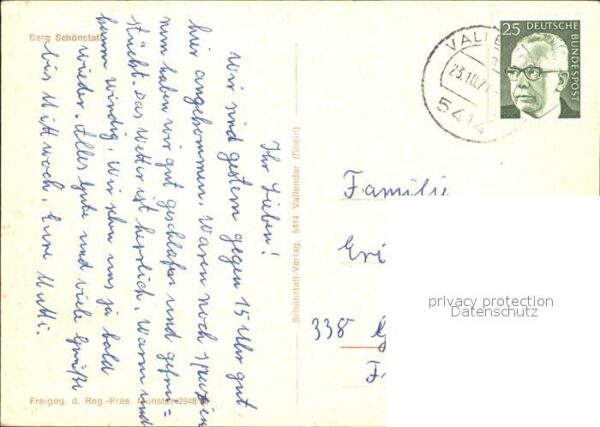 Berg Schönstatt
Ihr Lieben!
Wir sind gestern gegen 15 Uhr gut
hier angekommen. Waren noch spazieren
nun haben wir gut geschlafen und gefrüh=
stückt. Das Wetter ist herrlich. Warm und
kaum windig. Wir sehn uns ja bald
wieder. Alles Gute und viele Grüße
bis Mittwoch. Eure Mutti.
Freigeg. d. Reg.-Präs. Münster 2948
Schönstatt-Verlag, 5414 Vallendar (Rhein)
VALLE
23.10.7
5414
25 DEUTSCHE
BUNDESPOST
Familie
Eri
338 G
F
privacy protection
Datenschutz